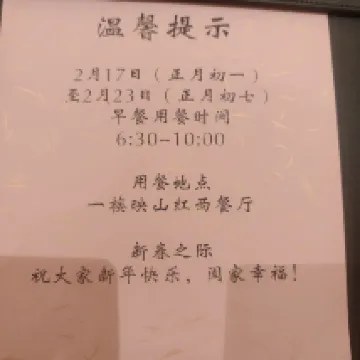 温馨提示
2月17日（正月初一）
至2月23日（正月初七）
早餐用餐时间
6:30-10:00
用餐地点
一楼映山红西餐厅
新春之际
祝大家新年快乐，阖家幸福！